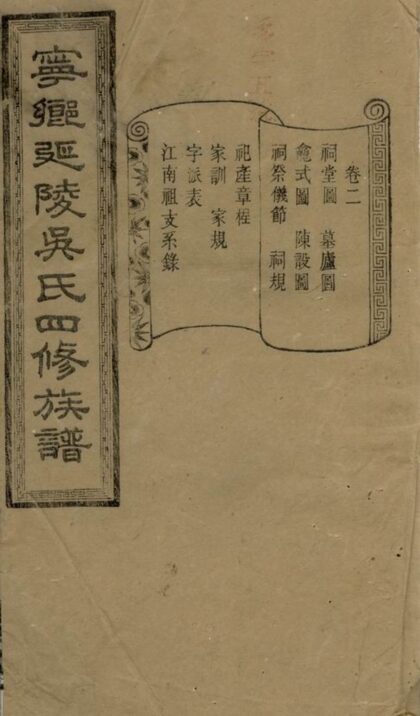 寧鄉延陵吳氏四修族譜
卷二
祠堂圖 墓廬圖
龕式圖 陳設圖
祠祭儀節 祠規
祀產章程
家訓 家規
字派表
江南祖支系錄